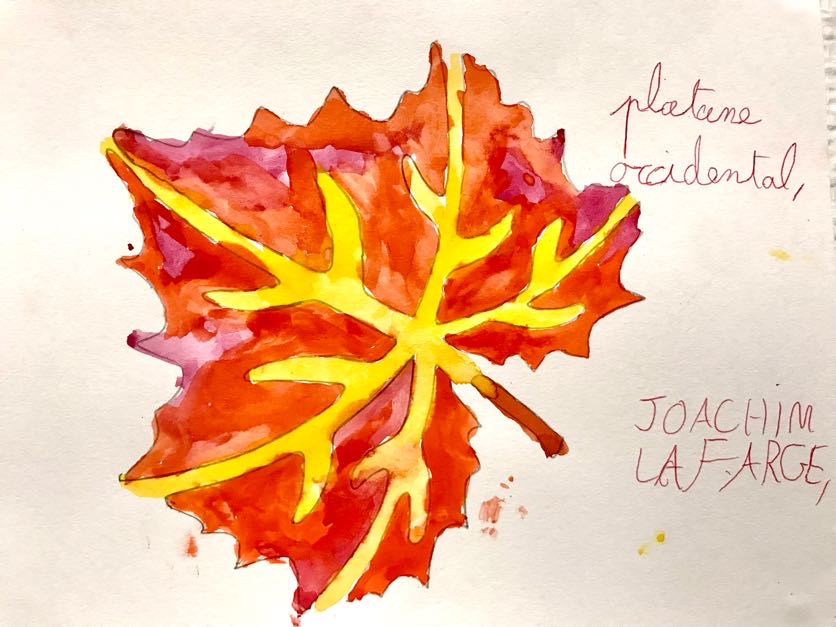 platane
occidental,
JOACHIM
LAFARGE,